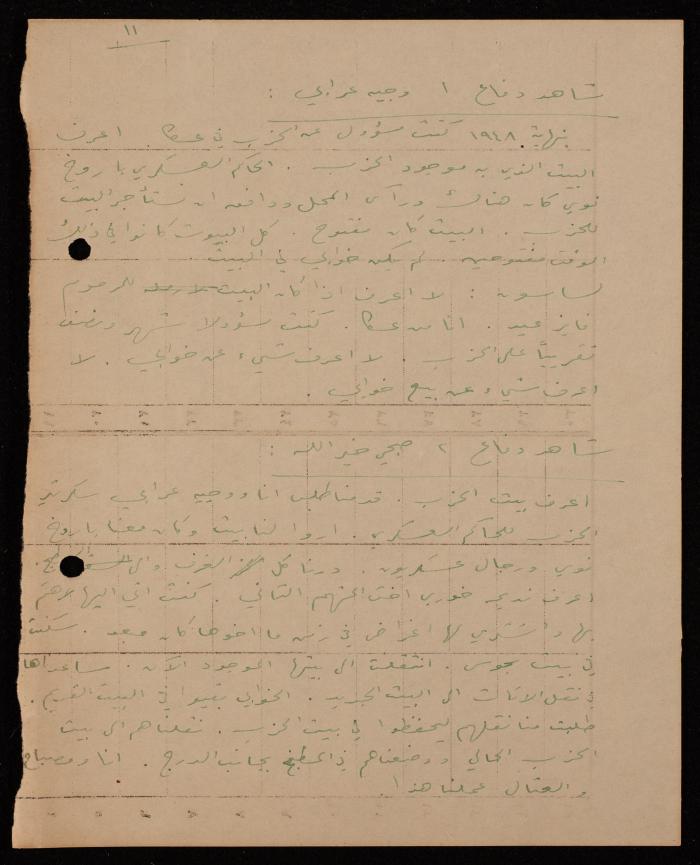 ١١
شاهد دفاع ١ وجيه عرابي :
بنهاية ١٩٤٨ كنت مسؤول عن الحزب في عكا. اعرف
البيت الذي به موجود الحزب . الحاكم العسكري باروخ
نوي كان هناك ورآى المحل ووافق ان نستأجر البيت
للحزب . البيت كان مفتوح . كل البيوت كانوا في ذلك
الوقت مفتوحين . لم يكن خوابي في البيت
لساسون : لا اعرف اذا كان البيت للمرحوم
فايز عيد . انا من عكا . كنت مسؤولا شهر ونصف
تقريبًا على الحزب . لا اعرف شيء عن خوابي . لا
اعرف شيء عن بيع خوابي .
شاهد دفاع ٢ صبحي خير الله :
اعرف بيت الحزب . قدمنا طلب انا ووجيه عرابي سكرتير
الحزب للحاكم العسكري . اروا لنا بيت وكان معنا باروخ
نوي ورجال عسكريون . درنا كل الغرف والمطبخ .
اعرف نديمه خوري اخت المتهم الثاني . كنت اتي اليها اهتم
بها واشتري لها اغراض في زمن ما اخوها كان مبعد . سكنت
في بيت بجوس . انتقلت الى بيتها الموجود الآن . ساعدناها
في نقل الاثاث الى البيت الجديد . الخوابي بقيوا في البيت القديم .
طلبت منا نقلهم ليحفظوا في بيت الحزب . نقلناهم الى بيت
الحزب الحالي ووضعناهم في المطبخ بجانب الدرج . انا ومصباح
والعتال عملنا هذا .